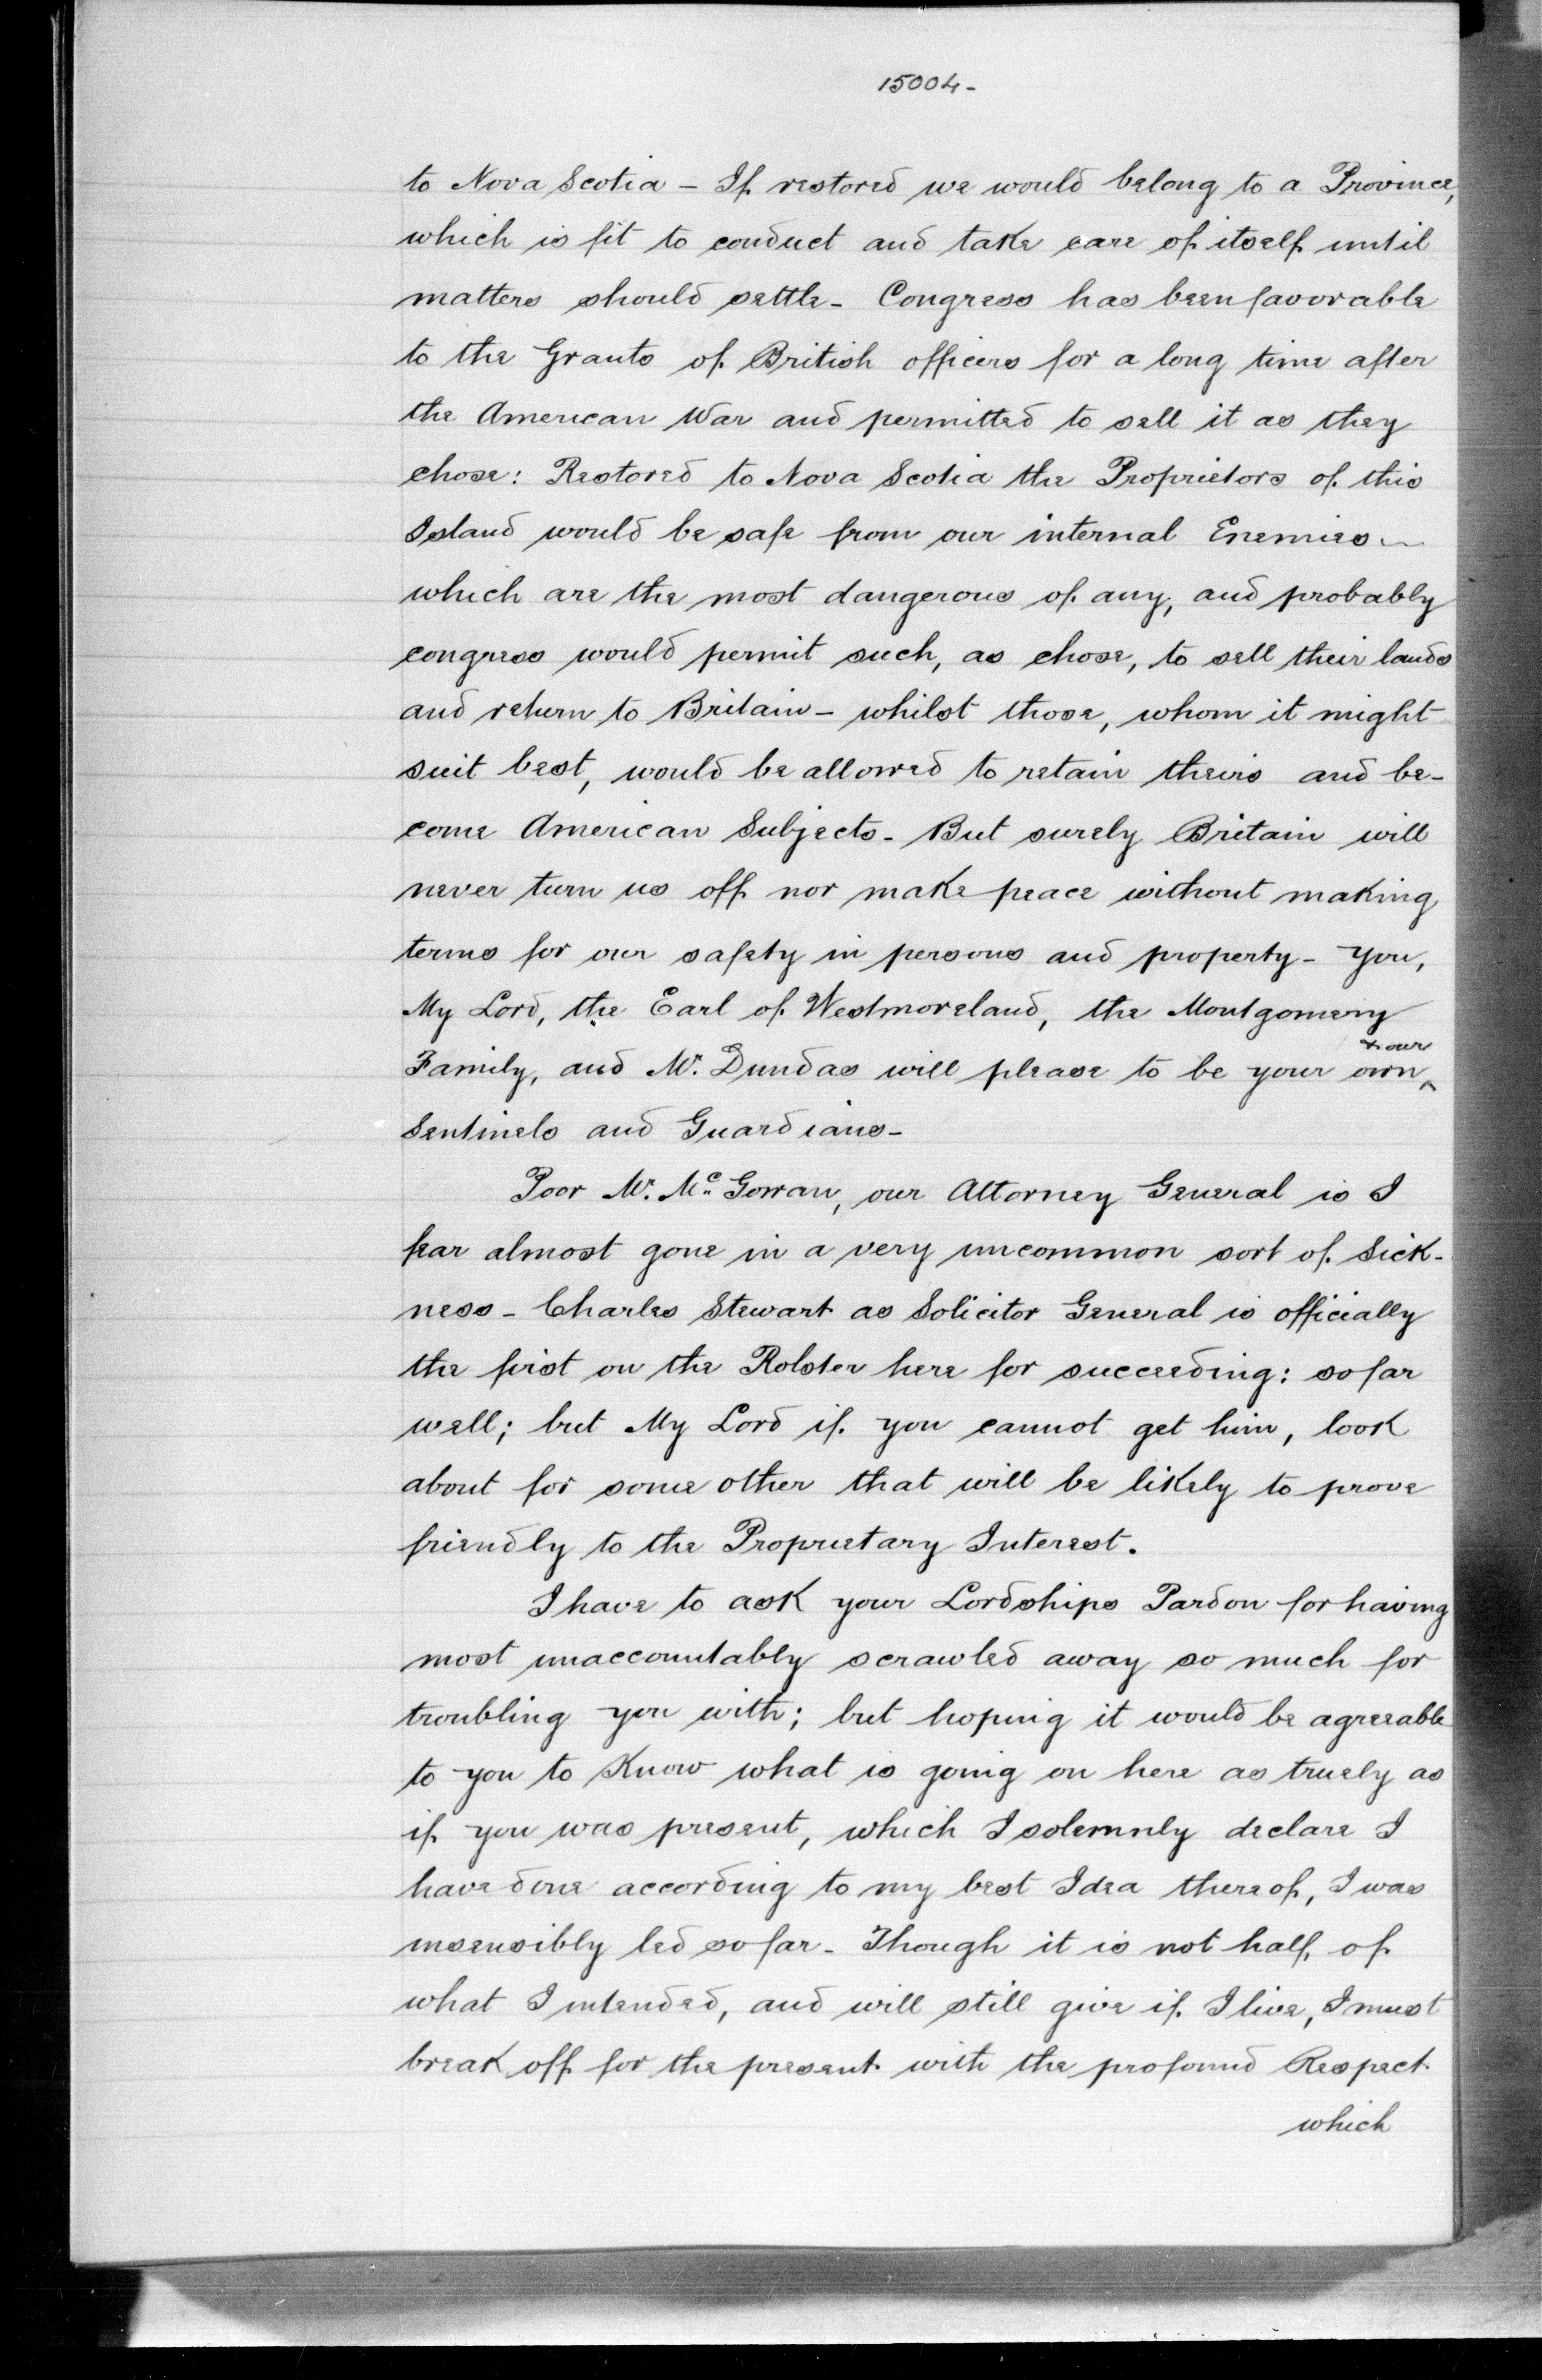 15004-
to Nova Scotia - If restored we would belong to a Province,
which is fit to conduct and take care of itself until
matters should settle - Congress has been favorable
to the Grants of British officers for a long time after
the American War and permitted to sell it as they
chose: Restored to Nova Scotia the Proprietors of this
Island would be safe from our internal Enemies -
which are the most dangerous of any, and probably
congress would permit such, as chose, to sell their lands
and return to Britain - whilst those, whom it might
suit best, would be allowed to retain theirs and be-
come American Subjects - But surely Britain will
never turn us off nor make peace without making
terms for our safety in persons and property - You,
My Lord, the Earl of Westmoreland, the Montgomery
& our
Family, and Mr. Dundas will please to be your own ^
Sentinels and Guardians -
Poor Mr. McGowan, our Attorney General is I
fear almost gone in a very uncommon sort of Sick-
ness - Charles Stewart as Solicitor General is officially
the first on the Rolster here for succeeding: so far
well; but My Lord if you cannot get him, look
about for some other that will be likely to prove
friendly to the Proprietary Interest.
I have to ask your Lordships Pardon for having
most unaccountably scrawled away so much for
troubling you with; but hoping it would be agreeable
to you to Know what is going on here as truely as
if you was present, which I solemnly declare I
have done according to my best Idea thereof, I was
insensibly led so far - Though it is not half of
what I intended, and will still give if I live, I must
break off for the present with the profound Respect
which